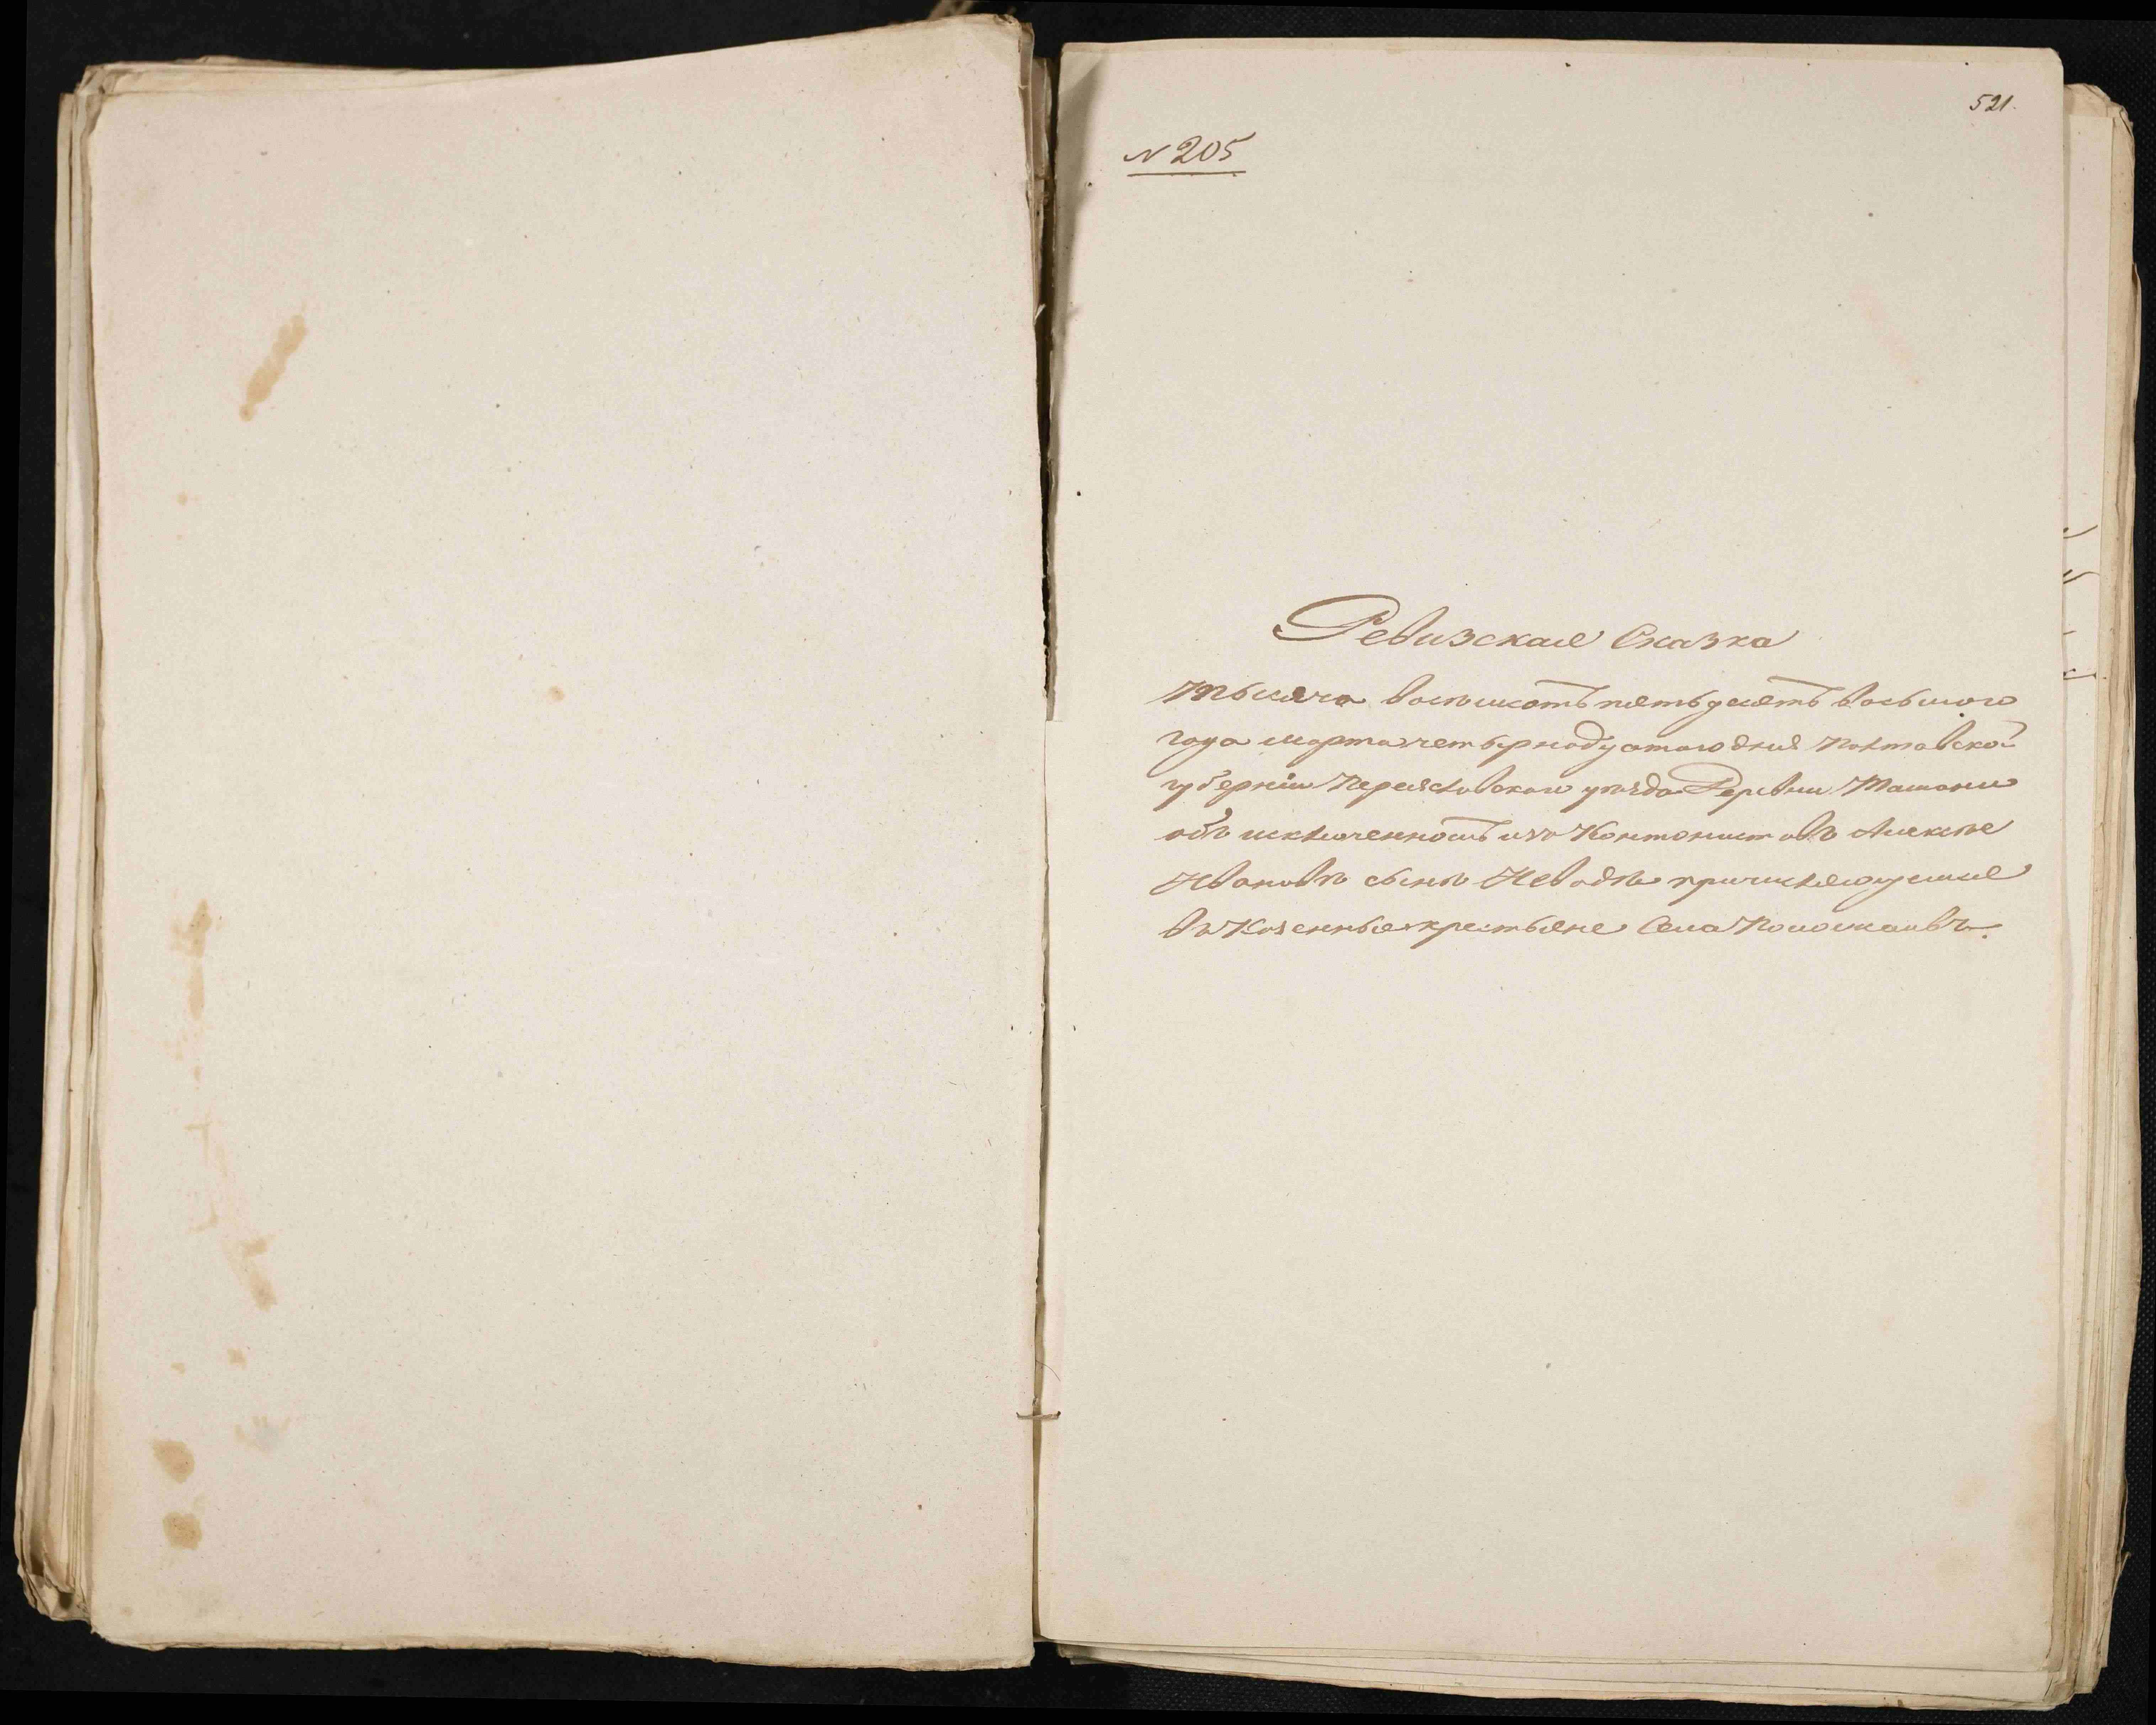 521.
N 205
Ревизская Сказка
тысяча восемсотъ пятьдесятъ восьмого
года марта четырнадцатого дня Полтавской
губерніи Переясловского уезда Деревни Ташани
объ исключенномъ изъ Кантонистовъ Алексѣе
Ивановѣ сынѣ причисляющемся
въ Казенные крестьяне Села